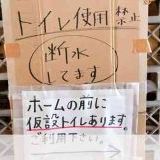 トイレ使用禁止
断水
してます
ホームの前に
仮設トイレあります。
ご利用下さい。